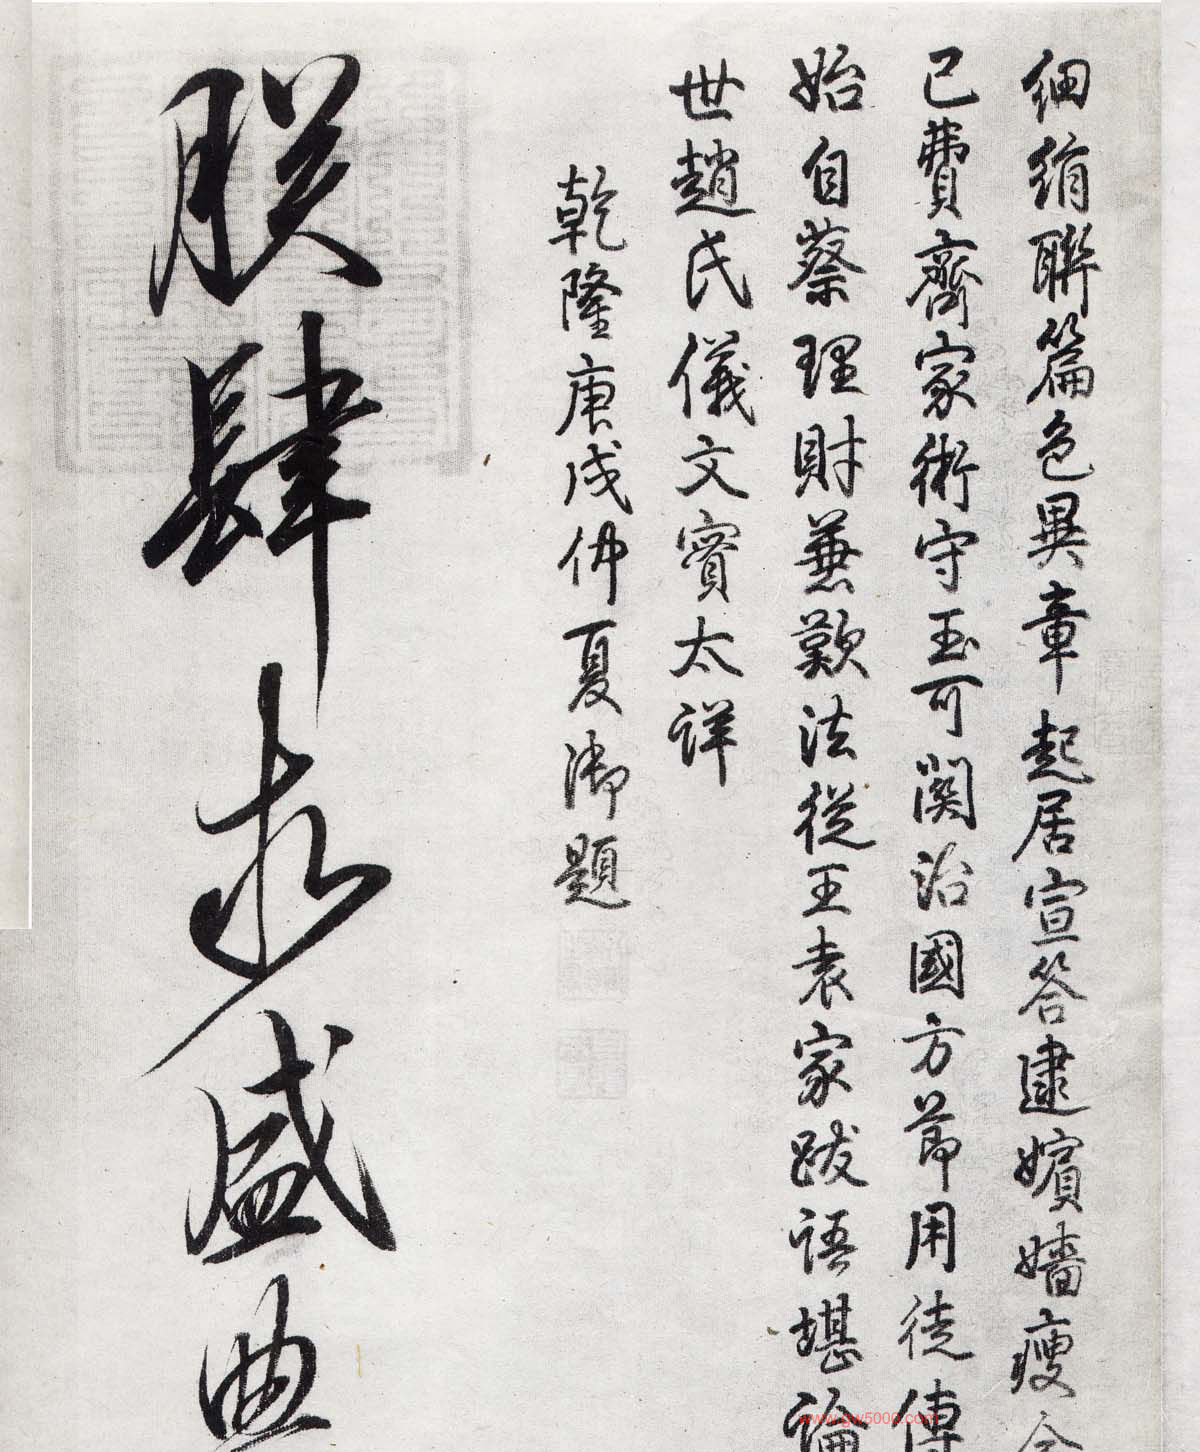 細絹聯篇色異章起居宣答逮嬪嬙瘦金
已費齊家術守玉可關治國方節用徒傳
始自蔡理財兼歎法從王袁家跋語堪論
世趙氏儀文實太詳
乾隆庚戌仲夏御題
朕肆求盛典
www.gw5000.com